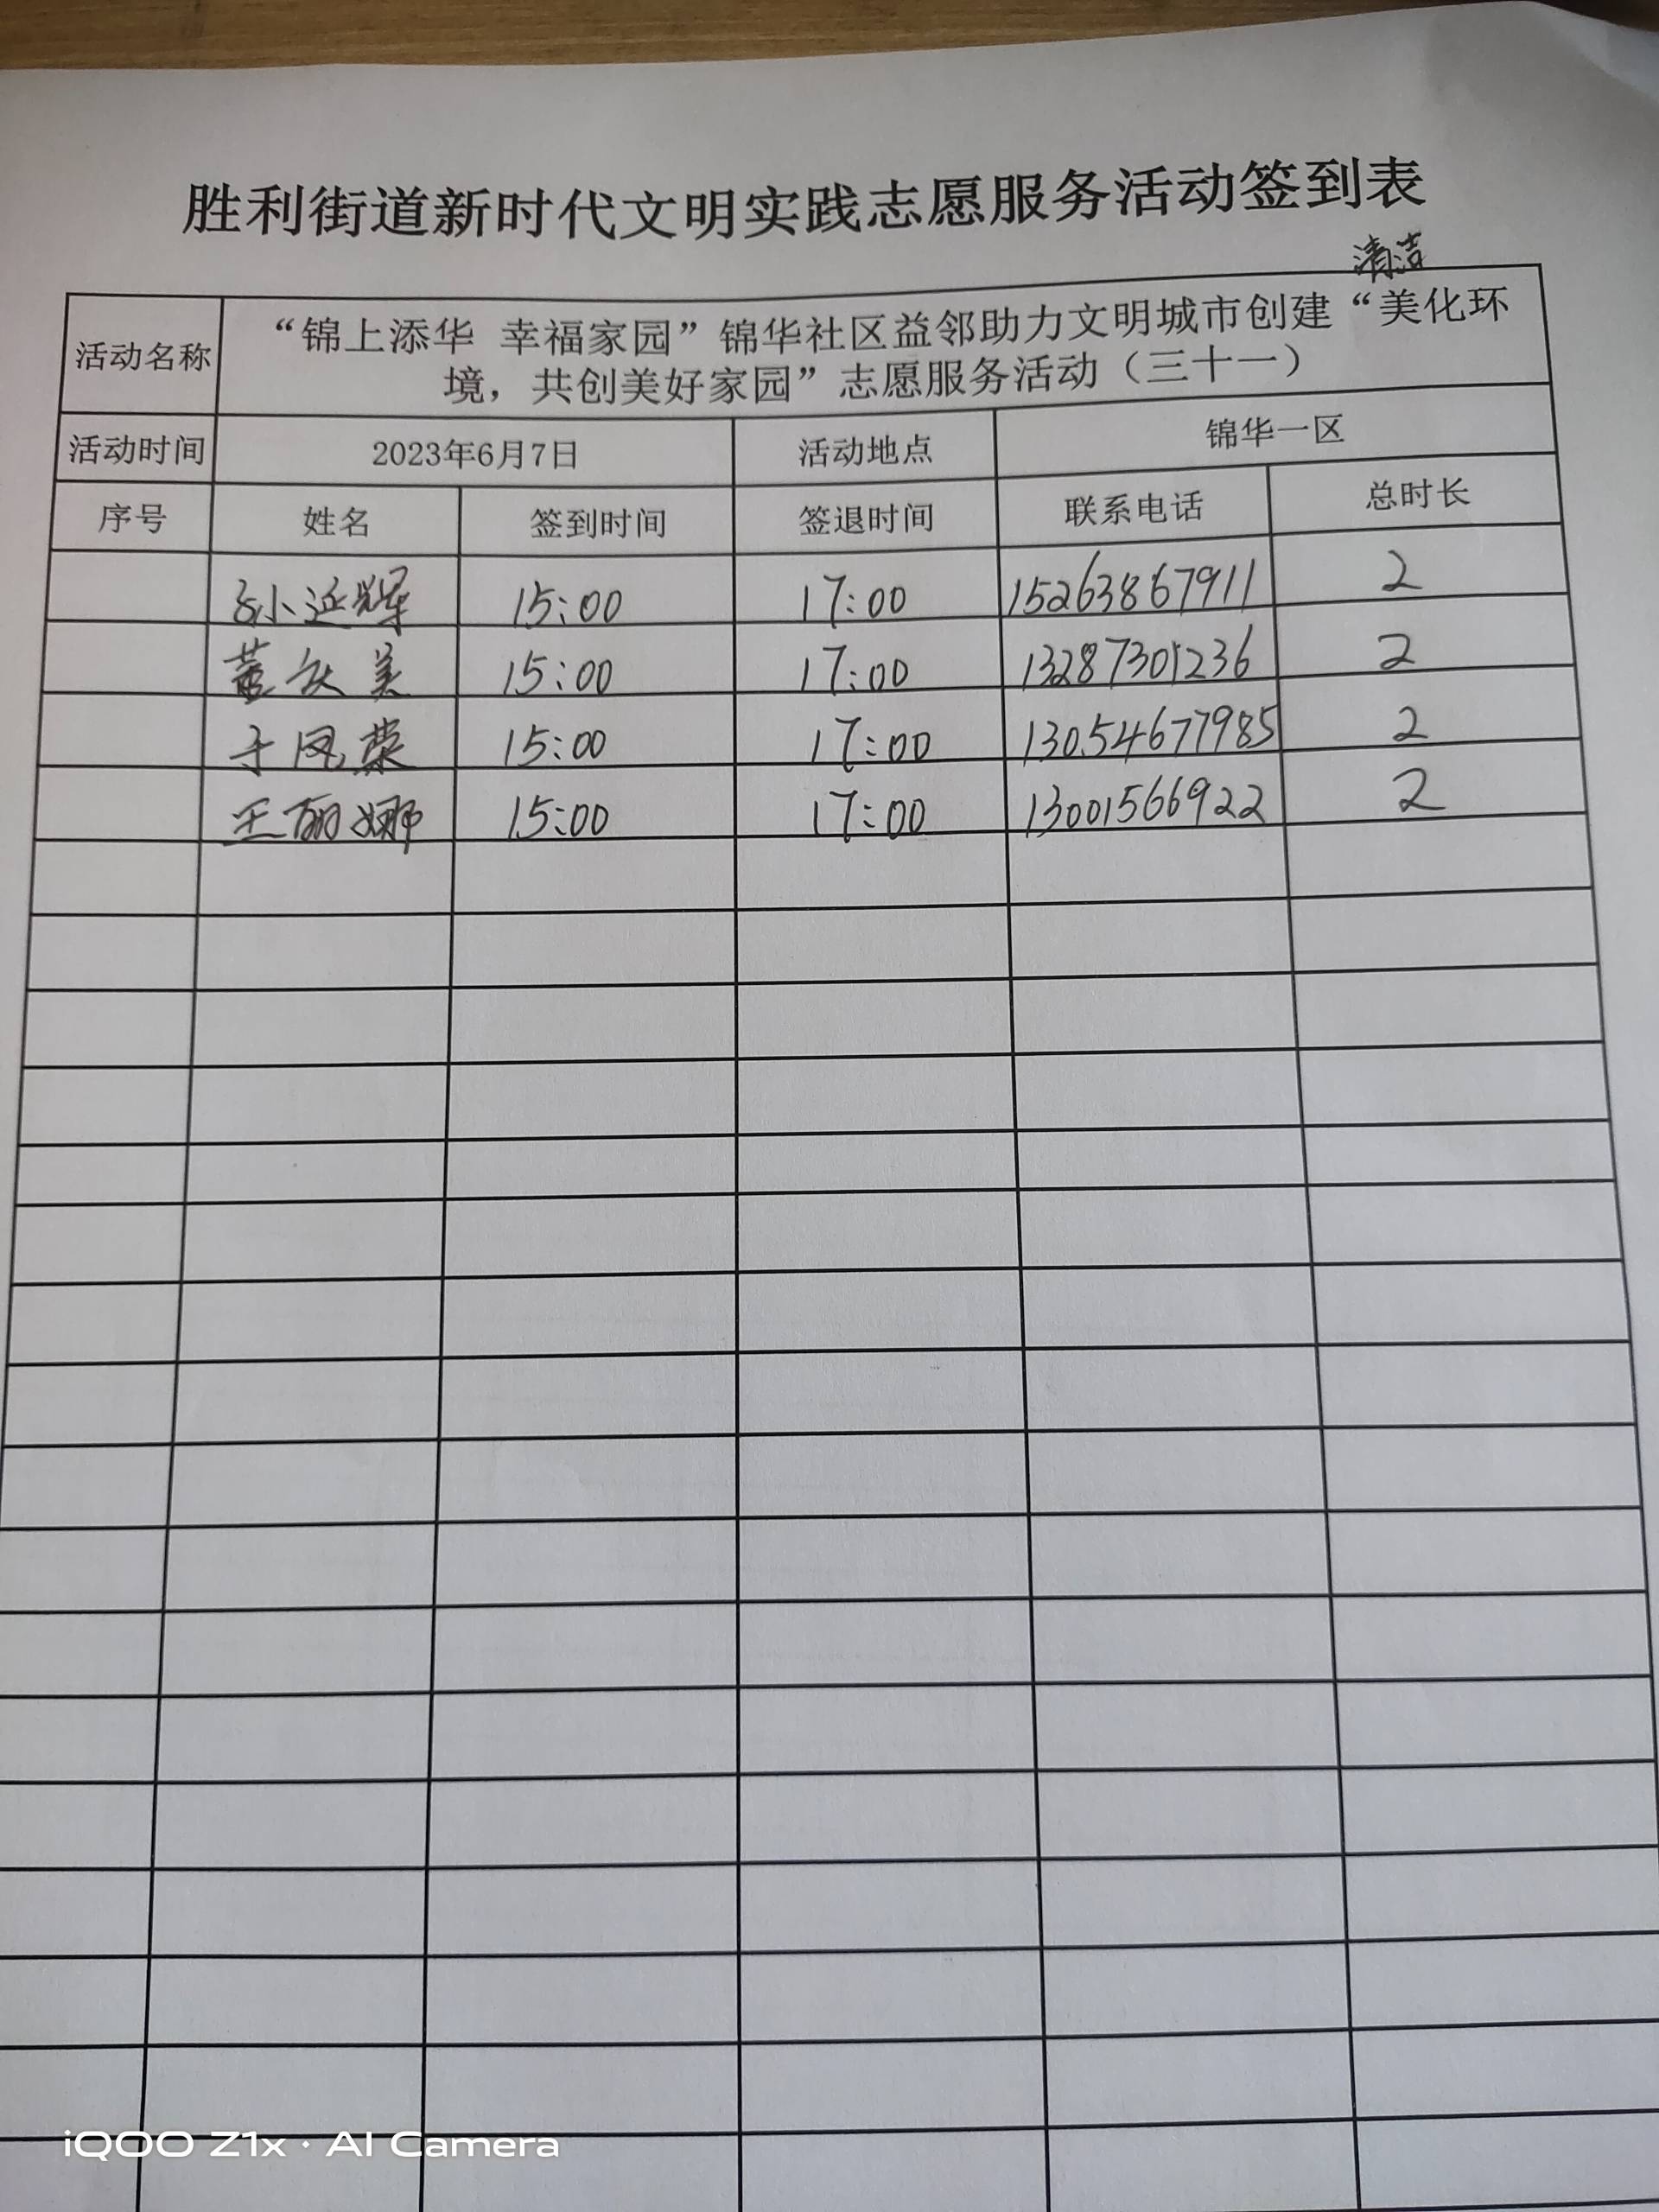 胜利街道新时代文明实践志愿服务活动签到表
清洁
活动名称 “锦上添华 幸福家园”锦华社区益邻助力文明城市创建“美化环
境，共创美好家园”志愿服务活动（三十一）
活动时间 2023年6月7日 活动地点 锦华一区
序号 姓名 签到时间 签退时间 联系电话 总时长
孙延辉 15:00 17:00 15263867911 2
董秋美 15:00 17:00 13287301236 2
于凤荣 15:00 17:00 13054677985 2
王丽娜 15:00 17:00 13001566922 2
iQOO Z1x · AI Camera